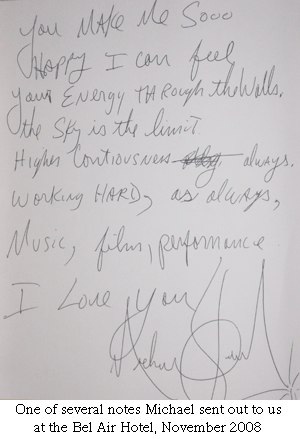 You Make Me Sooo
Happy I can feel
Your Energy Through the Walls.
the Sky is the limit.
Higher Contiousness always.
working HARD, as always,
Music, film, performance
I Love You
One of several notes Michael sent out to us
at the Bel Air Hotel, November 2008